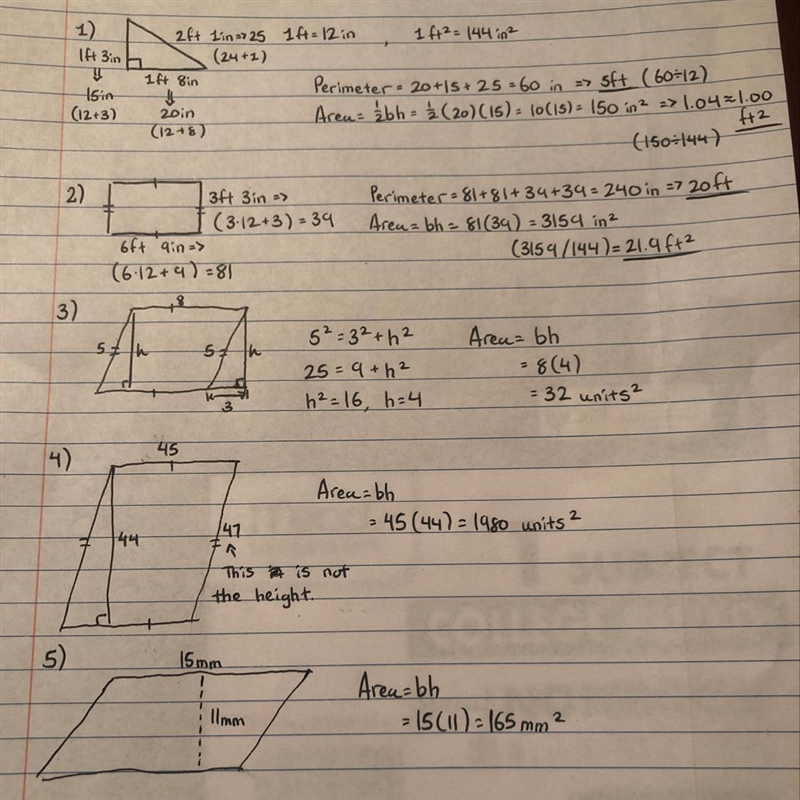 1) 2ft 1in => 25 1ft = 12 in , 1ft² = 144 in²
1ft 3in (24+1)
1ft 8in
⇓ ⇓
15in 20in
(12+3) (12+8)
Perimeter = 20+15+25 = 60 in => 5ft (60÷12)
Area = ½bh = ½(20)(15) = 10(15) = 150 in² => 1.04 ≈ 1.00
ft2
(150÷144)
2) 3ft 3in =>
(3·12+3) = 39
6ft 9in =>
(6·12+9) = 81
Perimeter = 81+81+39+39 = 240 in => 20ft
Area = bh = 81(39) = 3159 in²
(3159/144) = 21.9 ft²
3) 8
5 h 5 h
3
5² = 3² + h²
25 = 9 + h²
h² = 16, h = 4
Area = bh
= 8(4)
= 32 units²
4) 45
44 47
This is not
the height.
Area = bh
= 45(44) = 1980 units²
5) 15mm
11mm
Area = bh
= 15(11) = 165 mm²